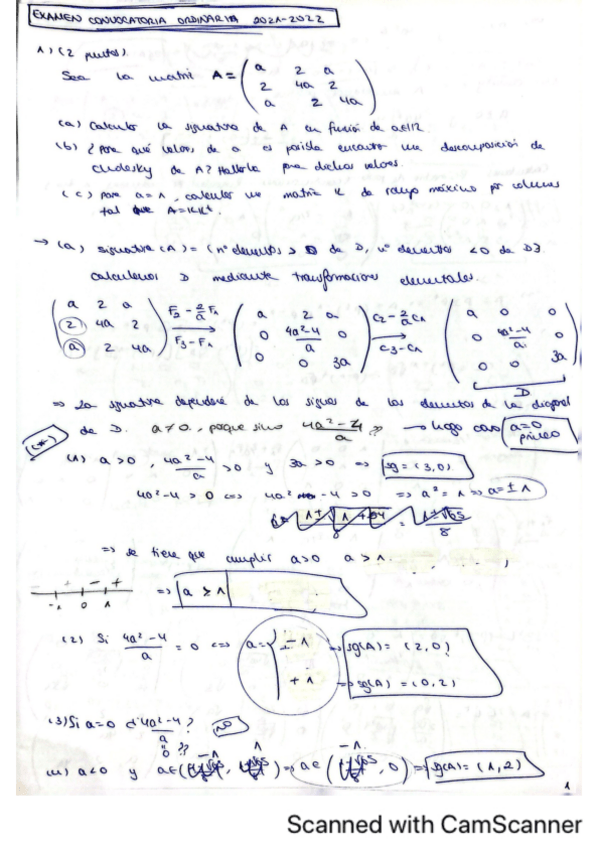 EXAMEN CONVOCATORIA ORDINARIA 2021-2022
1) (2 puntos).
Sea la matriz A = ( a 2 a
2 4a 2
a 2 4a )
(a) Calcular la signatura de A en función de a∈R.
(b) ¿Para qué valores de a es posible encontrar una descomposición de
Cholesky de A? Hallarla para dichos valores.
(c) para a=1, calcular una matriz K de rango máximo por columnas
tal que A=KKt.
→ (a) signatura (A) = (nº elementos > 0 de D, nº elementos <0 de D).
Calculemos D mediante transformaciones elementales.
( a 2 a
2 4a 2
a 2 4a ) F2 - 2/a F1
F3 - F1 → ( a 2 a
0 4a²-4/a 0
0 0 3a ) C2 - 2/a C1
C3 - C1 → ( a 0 0
0 4a²-4/a 0
0 0 3a )
D
⇒ La signatura dependerá de los signos de los elementos de la diagonal
de D. a≠0, porque sino 4a²-4/a ?? → hago caso a=0 primero
(*)
(1) a>0, 4a²-4/a >0 y 3a>0 ⇒ sg = (3,0)
4a²-4 > 0 ⇔ 4a² -4 >0 ⇒ a² = 1 ⇒ a=±1
⇒ se tiene que cumplir a>0 a>1.
- + - +
-1 0 1 ⇒ a > 1
(2) Si 4a²-4/a = 0 ⇔ a= { -1 ⇒ sg(A)= (2,0)
+1 ⇒ sg(A) = (0,2)
(3) Si a=0 ¿ 4a²-4/a ? NO
0 ??
(4) a<0 y a∈( -1, 1 ) ⇒ a∈ ( -1, 0) ⇒ sg(A)= (1,2)
1
Scanned with CamScanner